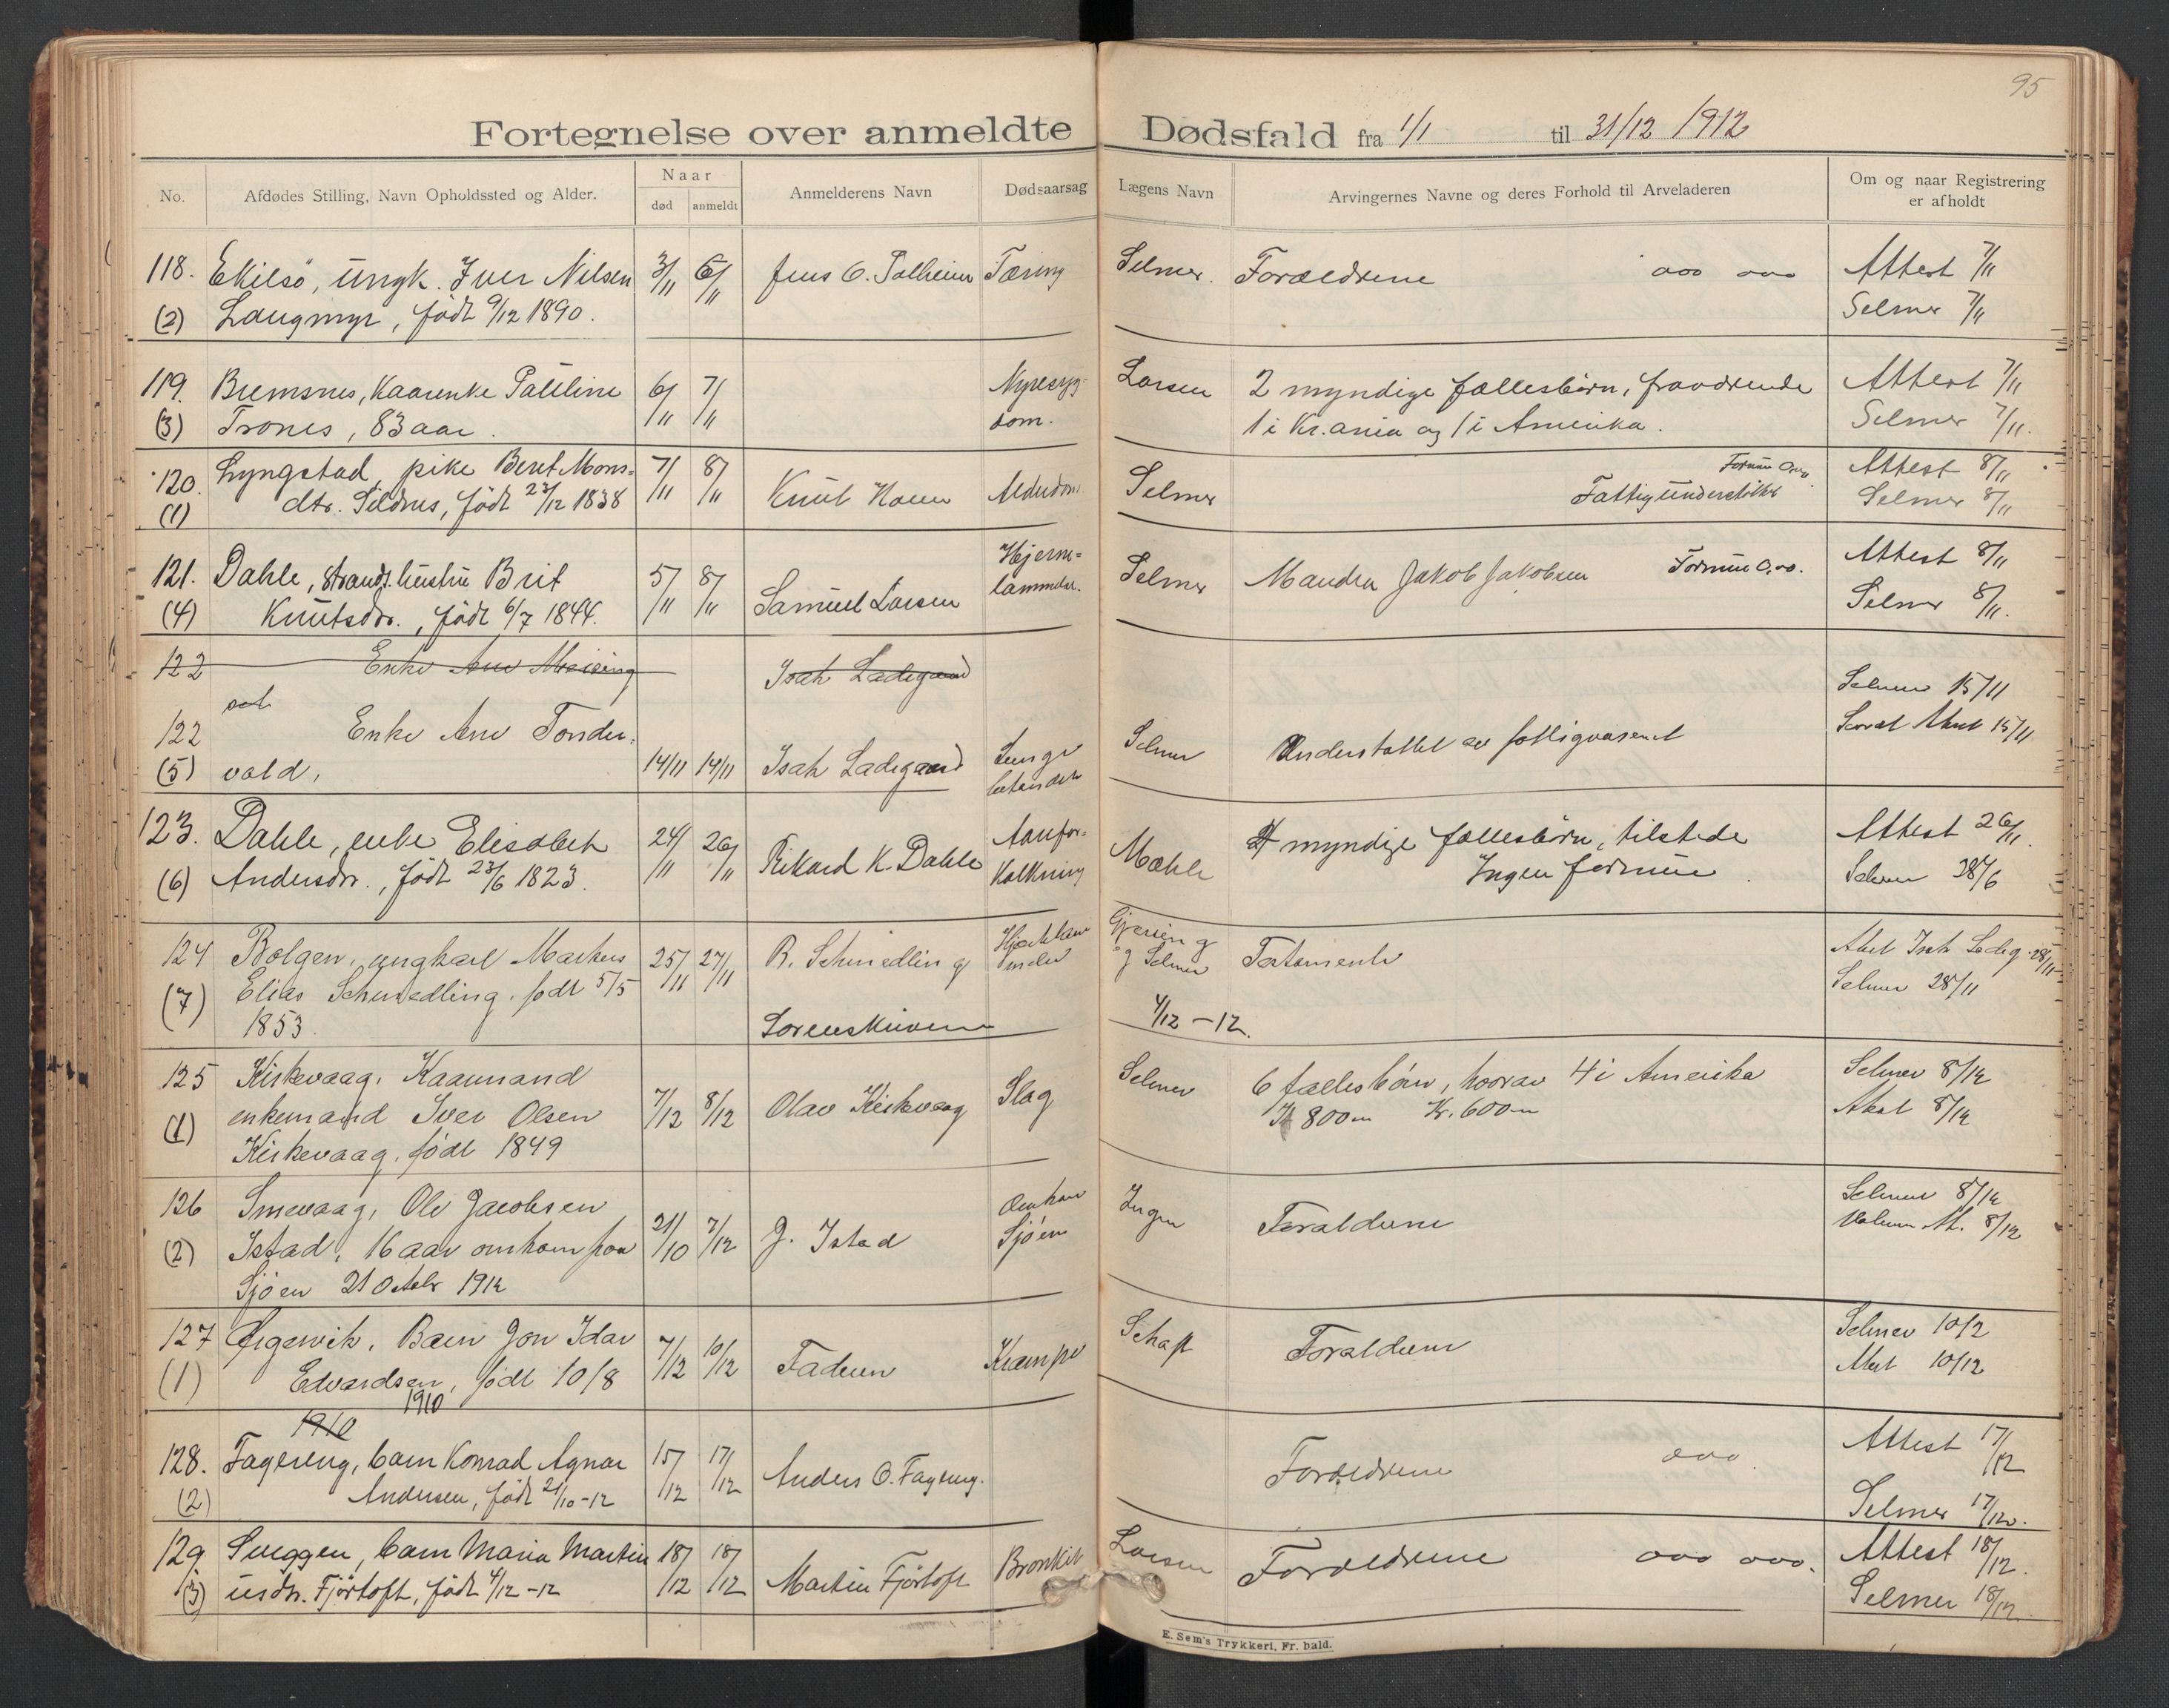 95
Fortegnelse over anmeldte Dødsfald fra 1/1 til 31/12 1912
No.
Afdødes Stilling, Navn Opholdssted og Alder.
Naar
død
anmeldt
Anmelderens Navn
Dødsaarsag
Lægens Navn
Arvingernes Navne og deres Forhold til Arveladeren
Om og naar Registrering
er afholdt
118. Ekilsö, ungk. Iver Nilsen 3/11 6/11 Jens O. Tæring Selmer. Forældrene ooo ooo Attest 7/11
(2) Langmyr, födt 9/12 1890. Selmer 7/11
119. Bremsnes, Kaarenke Pauline 6/11 7/11 Nyresyg- Larsen 2 myndige fællesbörn, fraværende Attest 7/11
(3) Trones, 83 aar. dom. 1 i Kr.ania og 1 i Amerika. Selmer 7/11.
120. Lyngstad, pike Beret Mons= 7/11 8/11 Knut Alderdom Selmer Formue 0,00 Attest 8/11
(1) dtr. Sildnes, födt 23/12 1838 Fattigunderstöttet Selmer 8/11
121. Dahle, strands. hustru Brit 5/11 8/11 Samuel Larsen Hjerne= Selmer Manden Jakob Jakobsen Formue 0,00. Attest 8/11
(4) Knutsdr., födt 6/7 1844. lammelse. Selmer 8/11.
122 Enke Ane Isak Ladegaard
Selmer 15/11
122 Enke Ane Tonder- Selmer Understøttet av fattigvæsenet 15/11
(5) vald, 14/11 14/11 Isak Ladegaard Lunge
betændels
123. Dahle, enke Elisabet 24/11 26/11 Rikard K. Dahle Aarefor= Mæhle 4 myndige fællesbörn, tilstede Attest 26/11.
(6) Andersdr., födt 23/6 1823. kalkning Ingen formue. Selmer 28/6
124 Bolgen, ungkarl Markus 25/11 27/11 R. Schmedling Testamente Isak Ladeg. 28/11
(7) Elias Schmedling. født 5/5 og Selmer Selmer 28/11
1853. Sorenskriveren 4/12-12.
125 Kirkevaag, Kaarmand 7/12 8/12 Olav Kirkevaag Slag Selmer 6 fællesbörn, hvorav 4 i Amerika Selmer 8/12
(1) enkemand Iver Olsen Kr 800 Kr. 600 8/12
Kirkevaag, født 1849
126 Smevaag, Ole Jacobsen 21/10 7/12 J. Istad Omkom Ingen Forældrene Selmer 8/12
(2) Istad, 16 aar omkom paa Sjøen 8/12
Sjøen 21 Octobr 1912
127 Ørgevik, Barn Jon Idar 7/12 10/12 Faderen Krampe Schaft Forældrene Selmer 10/2
(1) Edvardsen, født 10/8 10/12
1910
1910
128. Fagereng, barn Konrad Agnar 15/12 17/12 Anders O. Fagereng. Forældrene ooo. Attest 17/12
(2) Andersen, födt 21/10-12 Selmer 17/12.
129 Sveggen, barn Maria Martin 18/12 18/12 Martin Fjörtoft Bronkit Larsen Forældrene ooo ooo. Attest 18/12.
(3) usdr. Fjörtoft, födt 4/12-12 Selmer 18/12.
E. Sem's Trykkeri, Fr. hald.